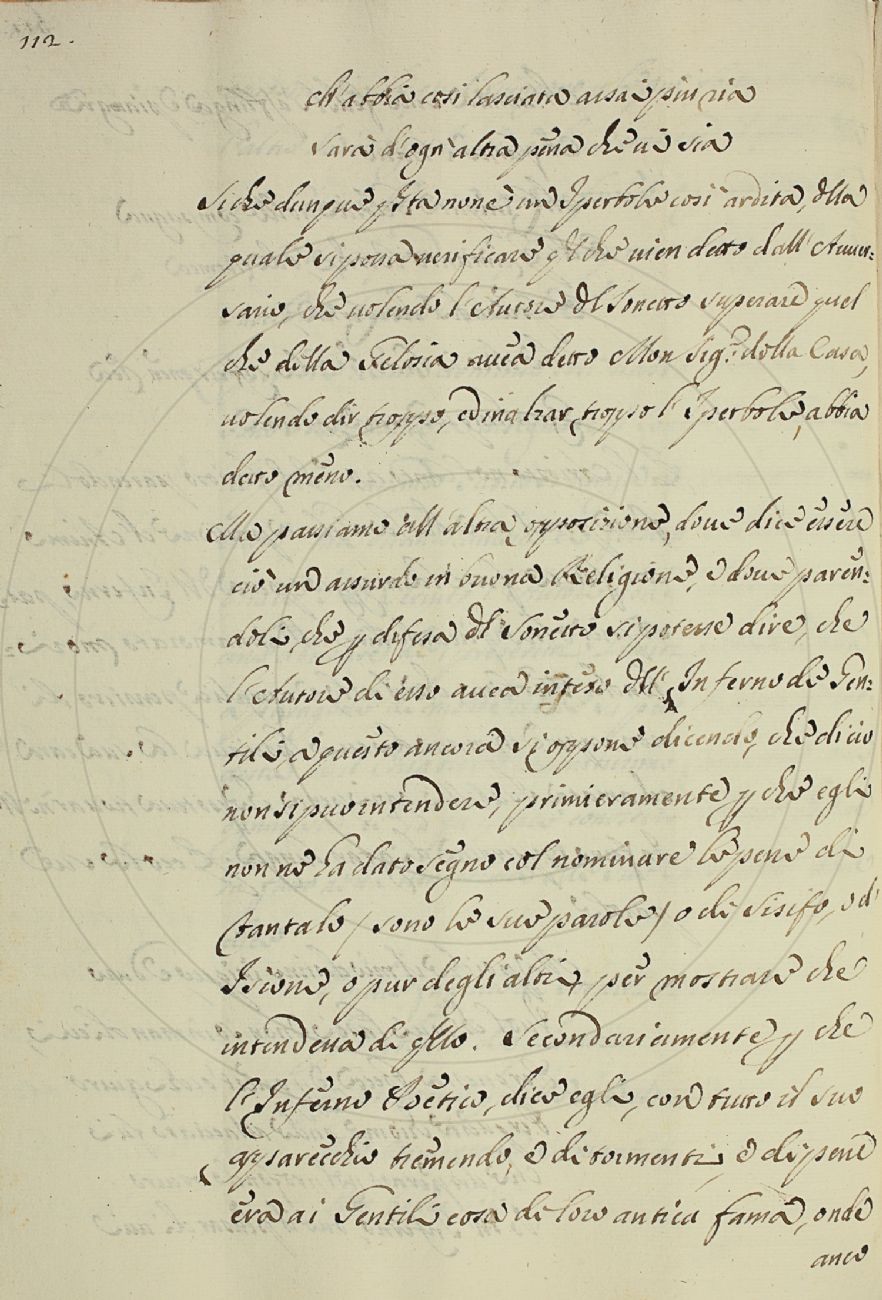 112.
ch'abbia così lasciata assai più ria
sarà d'ogn'altra pena che vi sia
Siche dunque qsta non è un Iperbole così ardita, dlla
quale si possa verificare ql che vien detto dall'Avver=
sario, che volendo l'Autore dl Sonetto superare quel
che della Gelosia avea detto Monsig.r della Casa,
volendo dir troppo, ed inalzar troppo l'Iperbole, abbia
detto meno.
Ma passiamo all'altra opposizione, dove dice essere
ciò un assurdo in buona Religione, e dove paren=
doli, che p difesa dl Sonetto si potesse dire, che
l'Autore di esso avea inteso dll'Inferno de Gen=
tili, a questo ancora si oppone dicendo, che di ciò
non si può intendere, primieramente p che egli
non ne ha dato segno col nominare le pene di
Tantalo / sono le sue parole / o di Sisifo, o d'
Isione, o pur degli altri, per mostrare che
intendeva di qllo. Secondariamente p che
l'Inferno Poetico, dice egli, con tutto il suo
apparecchio tremendo, e di tormenti, e di pene
era ai Gentili cosa di loro antica fama, onde
anco